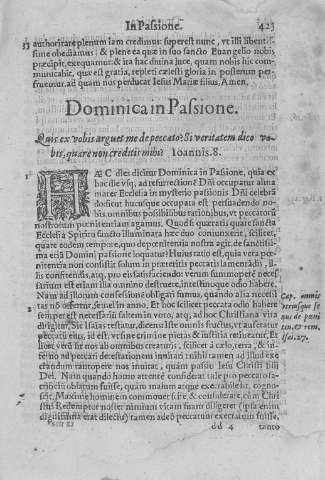 In Passione. 423
authoritate plenam iam credimus: superest nunc, vt illi libentissi-
me obediamus: & plenè ea quæ in suo sancto Euangelio nobis
præcipit, exequamur: & ita hac diuina luce, quam nobis hic com-
municabit, quæ est gratia, repleri cælesti gloria in posterum per-
fruemur, ad quam nos perducat Iesus Mariæ filius, Amen.
Dominica in Passione.
Quis ex vobis arguet me de peccato? Si veritatem dico vo-
bis, quare non creditis mihi? Ioannis. 8.
HÆC dies dicitur Dominica in Passione, quia ex
hoc die vsq; ad resurrectionē Dñi occupatur alma
mater Ecclesia in mysterio passionis Dñi
hucusque occupata est persuadendo no-
bis, omnibus possibilibus rationibus, vt peccatorū
nostrorum pœnitentiam agamus. Quod si quæratis quare sancta
Ecclesia Spiritu sancto illuminata hæc duo
quare eodem tempore, quo de pœnitentia nostra agit, de sanctissi-
ma etiā Domini passione loquatur? Huius ratio est, quia vera pœ-
nitentia non consistit solum in præteritis peccatis lamentādis, il-
lis confitendis, atq; pro eis satisfaciendo: verum summopere neces-
sarium est etiam illa omnino destruere, intestinoque odio habere.
Nam ad illorum confessionē obligati sumus, quando alia necessi-
tas nō offertur, semel in anno. Et hoc scilicet peccata odio habere
semper est necessariū saltem in voto, atq; ad hoc Christiana vita
dirigitur, Sic Isaias testatur, dicens: Iste omnis fructus, vt auferatur
peccatū eius, id est vt sine crimine pietas & iustitia retineatur, Et
licet verū sit nos ab omnibus creaturis, scilicet à cælo, terra, & in-
ferno ad peccati detestationem inuitari: nihil tamen ad illud exe-
crandum tantopere nos inuitat, quàm passio Iesu Christi filij
Dei. Nam quando homo attentè considerat tale pro peccato sa-
crificiū oblatum fuisse, quàm malum atque execrabile sit, cogno-
scit, Maximè hominem commouet scire, & considerare, cùm Chri-
stus Redemptor noster nimium vitam suam diligeret (ipsa enim
dignissima erat dilectu) tamen adeò peccatum execratum fuisse,
dd 4 tanto
Cap. omnis
vtriusque se
xus de pœni
ten. & rem.
Isai. 27.